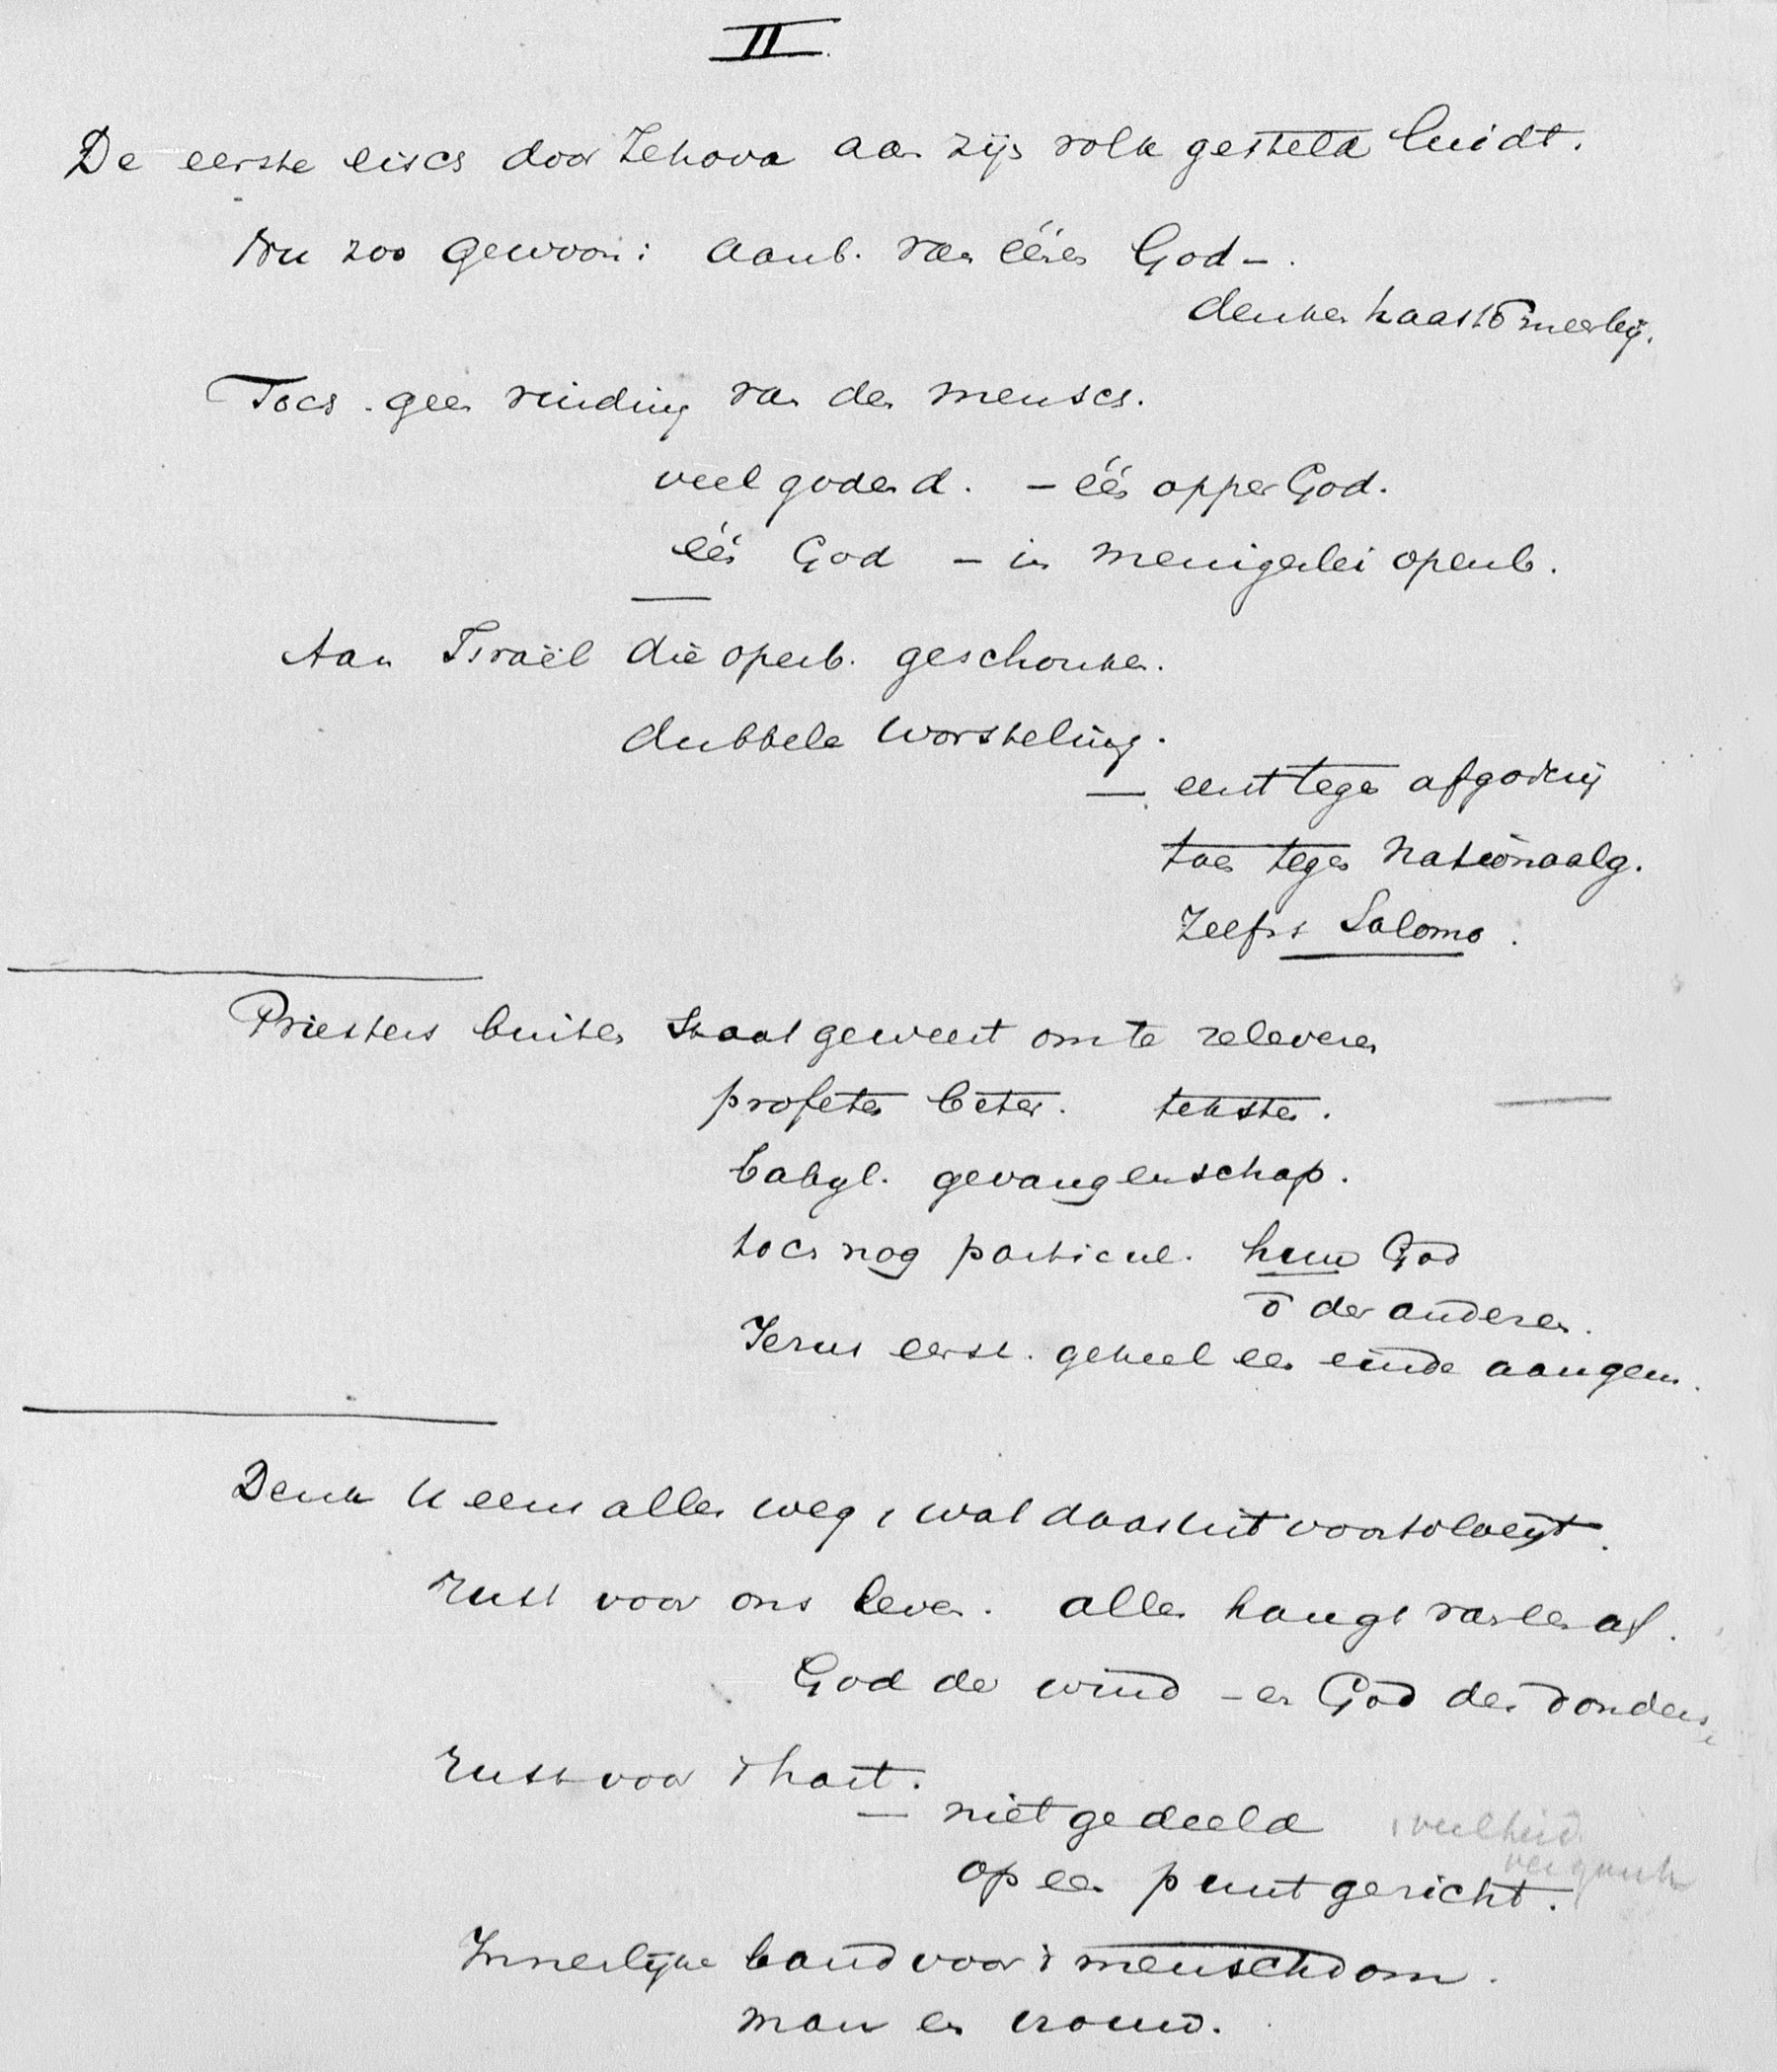 II
De eerste eisch door Jehova aan zijn volk gesteld luidt.
Nu zoo gewoon: aanb. van éénen God –.
denken haast õ meer bij.
Toch geen vinding van den mensch.
veel godend. – één opper God.
één God – in menigerlei openb.
Aan Israël die openb. geschonken.
dubbele worsteling.
– eerst tegen afgoderij
toen tegen Nationaalg.
Zelfs Salomo.
Priesters buiten staat geweest om te releveren
profeten beter. teksten.
babyl. gevangenschap.
toch nog particul. hun God
õ der anderen.
Jezus eerst. geheel een einde aangem.
Denk U eens alles weg, wat daaruit voortvloeijt.
Rust voor ons leven. alles hangt van één af.
God der wind – en God des donders,
Rust voor 't hart.
– niet gedeeld veelheid
op een punt gericht.
Innerlijke band voor 't menschdom.
man en vrouw.